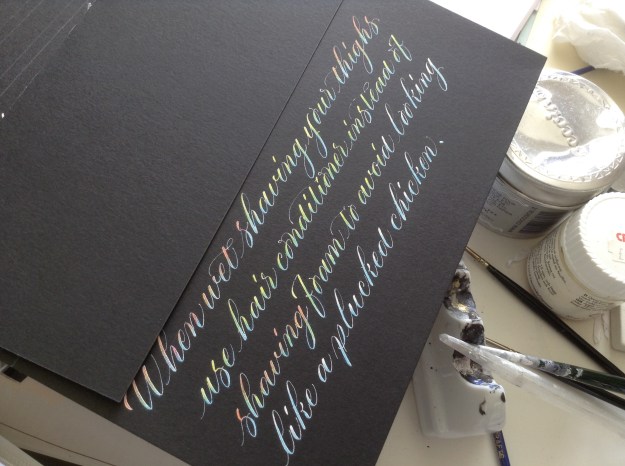 When wet shaving your thighs
use hair conditioner instead of
shaving foam to avoid looking
like a plucked chicken.